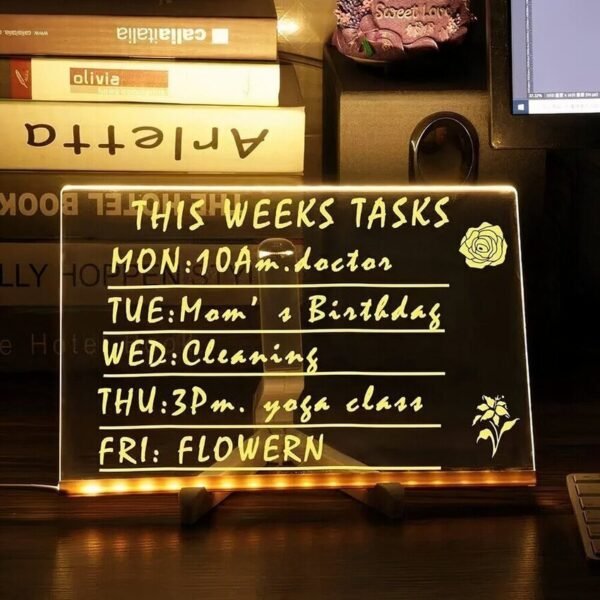 callaitalia
www.callaitalia.
olivia
Arletta
THE HOTEL BOOK
LLY HOPPEN STY
Sweet Lov
THIS WEEKS TASKS
MON:10Am.doctor
TUE:Mom's Birthday
WED:Cleaning
THU:3Pm. yoga class
FRI: FLOWERN